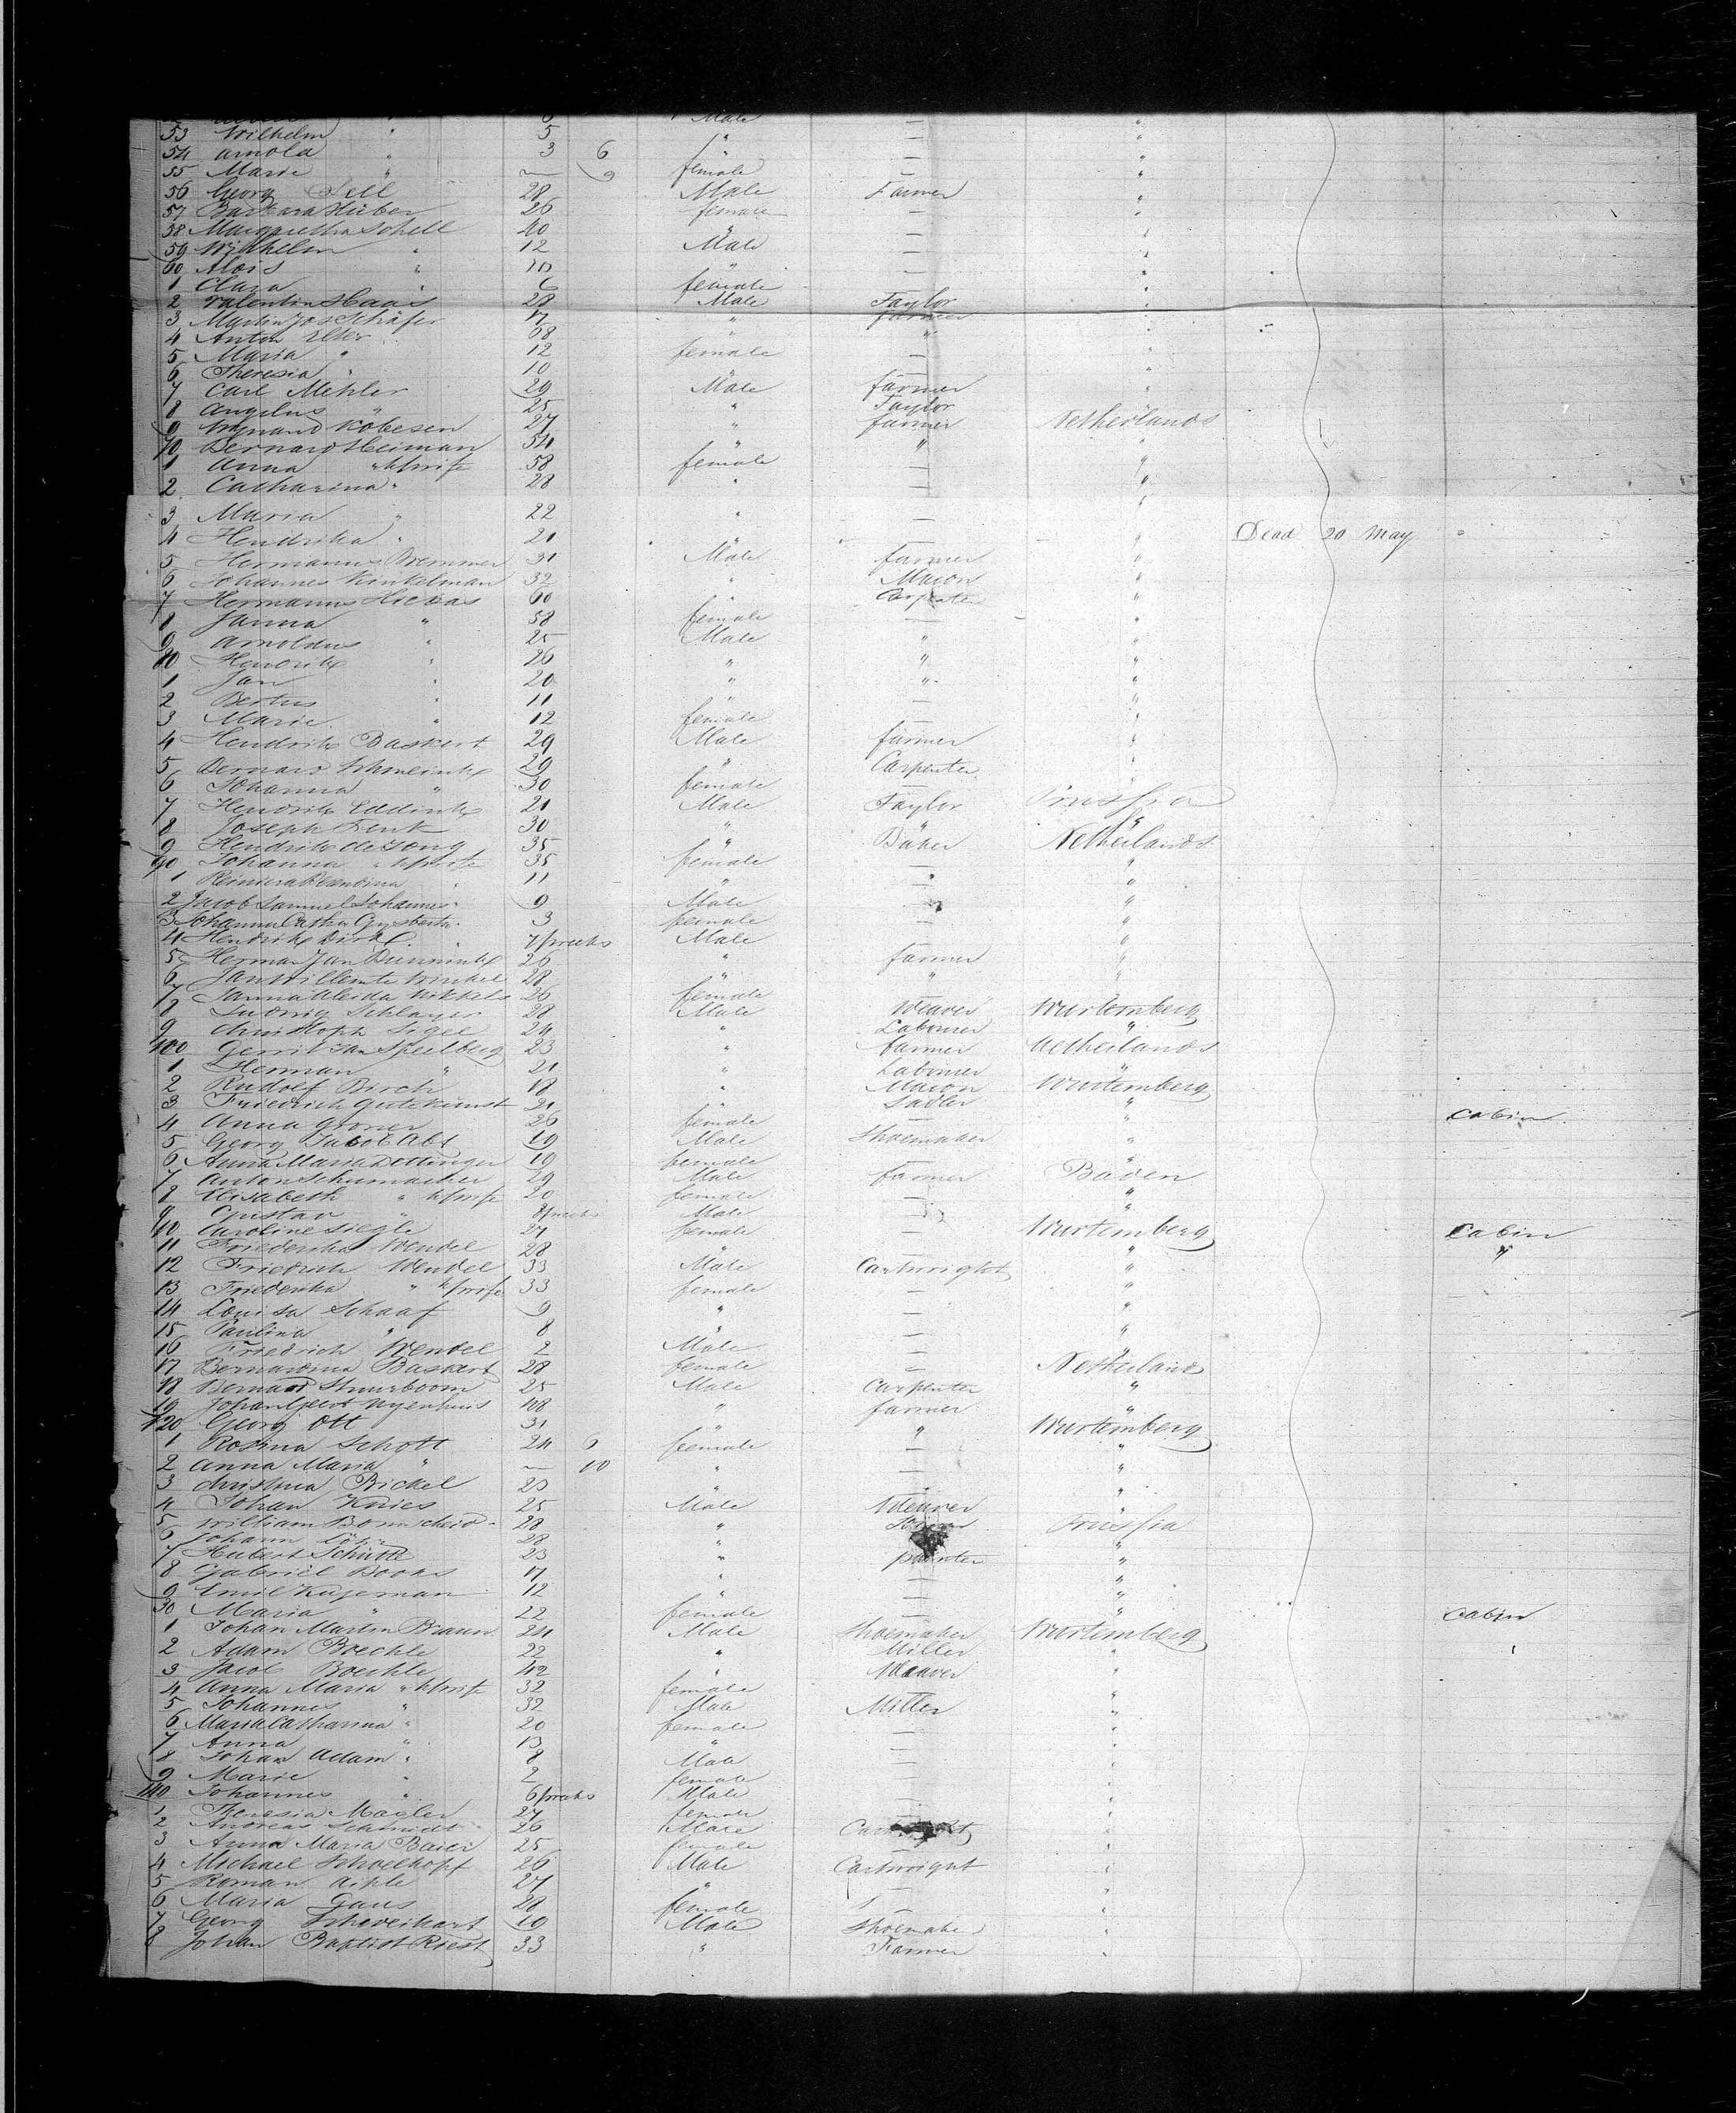 53 Wilhelm " 5 " — "
54 Arnold " 3 6 " — "
55 Marie " — 9 female — "
56 Georg Sell 28 Male Farmer "
57 Barbara Hüber 26 female — "
58 Margaretha Schell 40 " — "
59 Wilhelm " 12 Male — "
60 Alois " 10 " — "
1 Clara " 6 female — "
2 Valentin Haas 28 Male Taylor "
3 Martin Jos Schäfer 17 " farmer "
4 Anton Elter 68 " " "
5 Maria " 12 female — "
6 Theresia " 10 " — "
7 Carl Mehler 29 Male farmer "
8 Angelus " 25 " Taylor "
9 Wynand Kobesen 27 " farmer Netherlands
70 Bernard Heiman 54 " " "
1 Anna " h/wife 58 female — "
2 Catharina " 28 " — "
3 Maria " 22 " — "
4 Hendrika " 21 " — " Dead 20 May
5 Hermanus Bremmer 31 Male farmer "
6 Johannes Kinkelman 32 " Mason "
7 Hermanus 60 " Carpenter "
8 Janna " 58 female — "
9 Arnoldus " 25 Male " "
80 Hendrik " 26 " " "
1 Jan " 20 " " "
2 Bertus " 11 " — "
3 Marie " 12 female — "
4 Hendrik Baskert 29 Male farmer "
5 Bernard 29 " Carpenter "
6 Johanna " 30 female — "
7 Hendrik Eddink 21 Male Taylor Prussia
8 Joseph Fenk 30 " " "
9 Hendrik de Jong 35 " Baker Netherlands
90 Johanna " h/wife 35 female — "
1 Reindera Berendina " 11 " — "
2 Jacob Samuel Johannes " 9 Male — "
3 Johanna Catha Gysberta 3 female — "
4 Hendrik Dirk " 7 weeks Male — "
5 Herman Jan 26 " farmer "
6 Jan Willem te Winkel 28 " " "
7 Janna Aleida 26 female — "
8 Ludwig Schlayer 28 Male Weaver Wurtemberg
9 Christoph Sigel 24 " Labourer "
100 Gerrit van Speelberg 23 " farmer Netherlands
1 Herman " 21 " Labourer "
2 Rudolf Birch 18 " Mason Wurtemberg
3 Friedrich Gutekunst 21 " Sadler "
4 Anna Groner 26 female — " Cabin
5 Georg Jacob Abt 19 Male Shoemaker "
6 Anna Maria Dettinger 19 female — "
7 Anton Schumacher 29 Male farmer Baden
8 Elisabeth " h/wife 20 female — "
9 Gustav " 8 weeks Male — "
10 Caroline Siegle 27 female — Wurtemberg Cabin
11 Friederika Wendel 28 " — " "
12 Friedrich Wendel 33 Male Cartwright "
13 Friederika " h/wife 33 female — "
14 Louisa Schaaf 9 " — "
15 Paulina " 8 " — "
16 Friedrich Wendel 2 Male — "
17 Bernardina Baskert 28 female — Netherland
18 Bernard Stuurboom 25 Male Carpenter "
19 Johan Gerot Nyenhuis 48 " farmer "
120 Georg Ott 31 " " Wurtemberg
1 Rosina Schott 24 6 female — "
2 Anna Maria " — 10 " — "
3 Christina Bickel 23 " — "
4 Johan Knies 25 Male Weaver "
5 William Bornscheid 28 " Prussia
6 Johann 28 " "
7 Hubert Schütte 23 " painter "
8 Gabriel Books 17 " — "
9 Emil Kugeman 12 " — "
30 Maria " 22 female — " Cabin
1 Johan Martin Braun 24 Male Shoemaker Wurtemberg
2 Adam Boechle 22 " Miller "
3 Jacob Boechle 42 " Weaver "
4 Anna Maria " h/wife 32 female — "
5 Johannes " 32 Male Miller "
6 Maria Catharina " 20 female — "
7 Anna " 13 " — "
8 Johan Adam " 8 Male — "
9 Marie " 2 female — "
140 Johannes " 6 weeks Male — "
1 Theresia Magler 27 female — "
2 Andreas Schmidt 26 Male "
3 Anna Maria Baier 25 female — "
4 Michael Schoelkopf 26 Male Cartwright "
5 Roman Aikle 27 " — "
6 Maria Gaus 28 female — "
7 Georg Schweikart 19 Male Shoemaker "
8 Johan Baptist Riest 33 " Farmer "